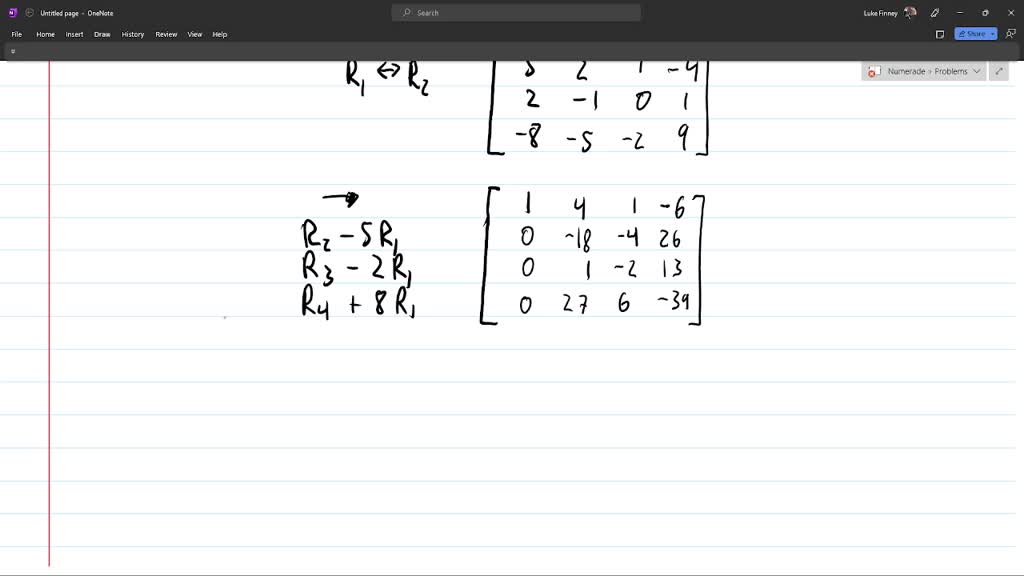 Untitled page - OneNote
Search
Luke Finney
File Home Insert Draw History Review View Help
Share
Numerade » Problems
R1 ↔ R2
5 2 1 -4
2 -1 0 1
-8 -5 -2 9
→
1 4 1 -6
R2 - 5R1 0 -18 -4 26
R3 - 2R1 0 1 -2 13
R4 + 8R1 0 27 6 -39